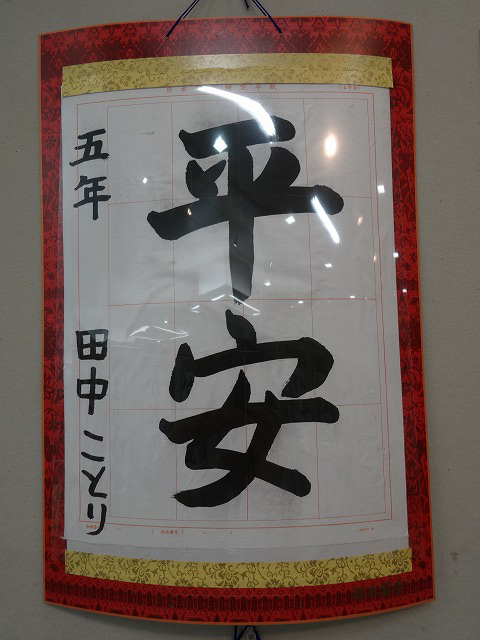 平安
五年 田中ことり